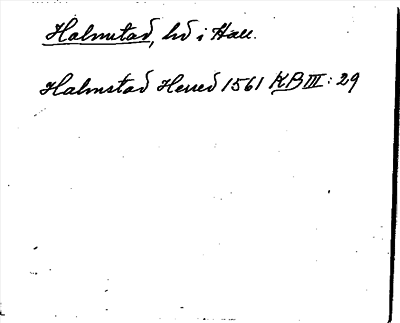 Halmstad, hd i Hall.
Halmstad Herred 1561 KB III: 29